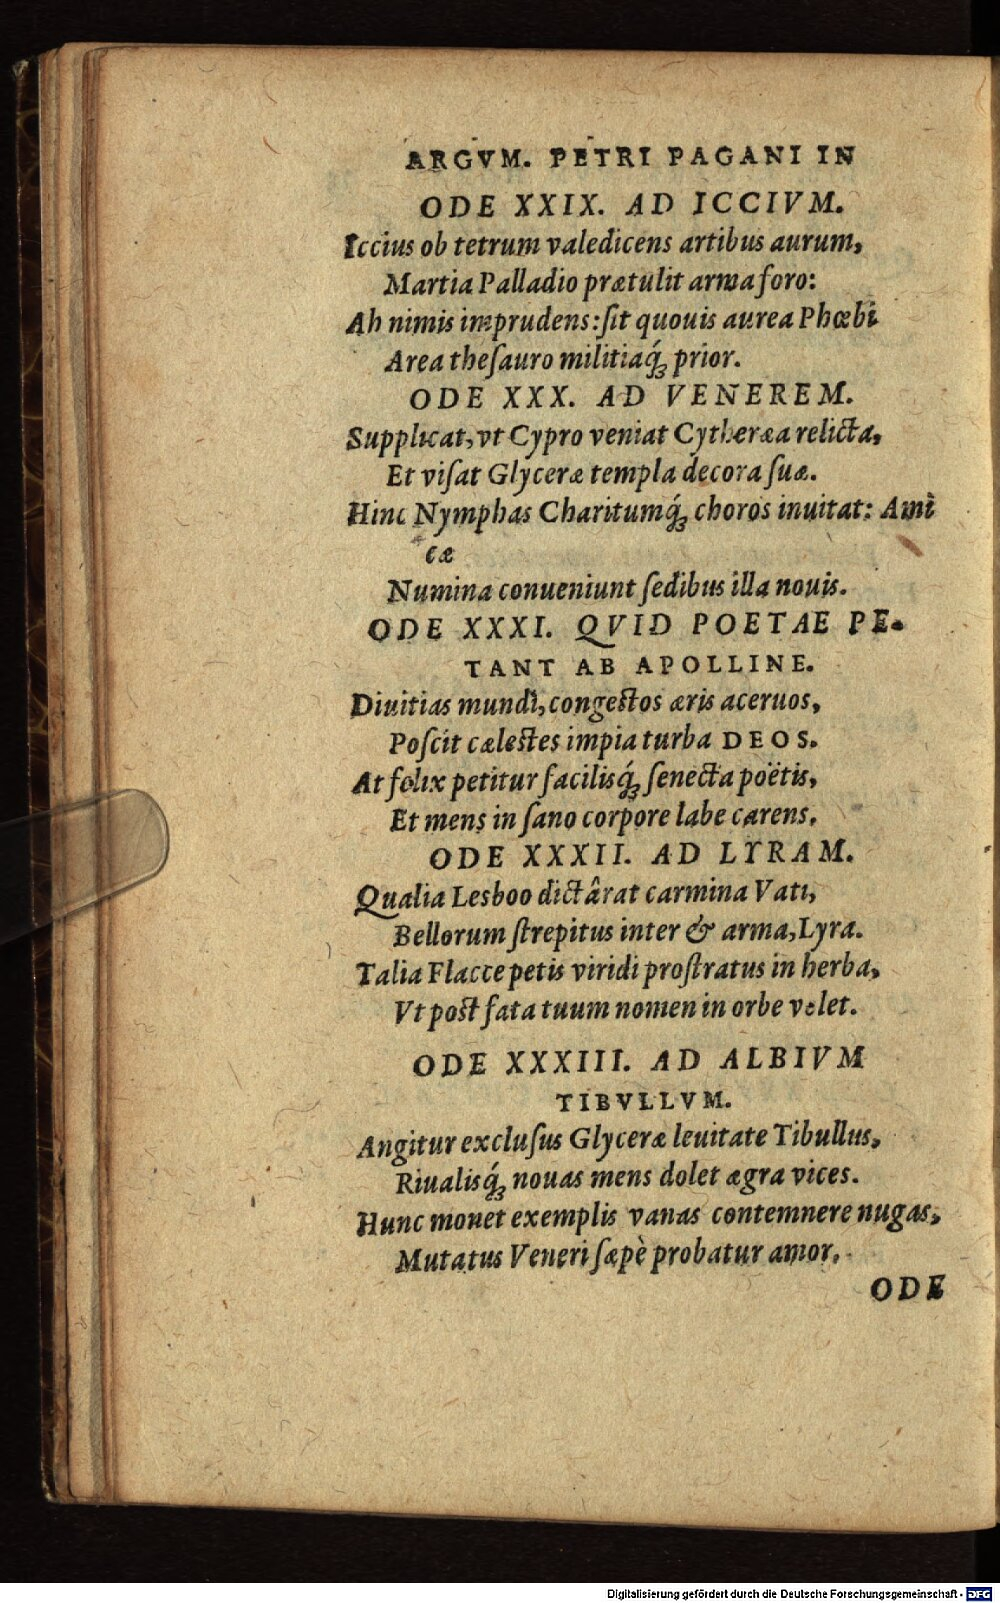 ARGVM. PETRI PAGANI IN
ODE XXIX. AD ICCIVM.
Iccius ob tetrum valedicens artibus aurum,
Martia Palladio prætulit arma foro:
Ah nimis imprudens: ſit quouis aurea Phœbi
Area theſauro militiaq́ꝫ prior.
ODE XXX. AD VENEREM.
Supplicat, vt Cypro veniat Cytheræa relicta,
Et viſat Glyceræ templa decora ſuæ.
Hinc Nymphas Charitumq́ꝫ choros inuitat: Ami
cæ
Numina conueniunt ſedibus illa nouis.
ODE XXXI. QVID POETAE PE-
TANT AB APOLLINE.
Diuitias mundi, congeſtos æris aceruos,
Poſcit cæleſtes impia turba DEOS.
At felix petitur facilisq́ꝫ ſenecta poëtis,
Et mens in ſano corpore labe carens.
ODE XXXII. AD LYRAM.
Qualia Lesboo dictârat carmina Vati,
Bellorum ſtrepitus inter & arma, Lyra.
Talia Flacce petis viridi proſtratus in herba,
Vt poſt fata tuum nomen in orbe volet.
ODE XXXIII. AD ALBIVM
TIBVLLVM.
Angitur excluſus Glyceræ leuitate Tibullus,
Riualisq́ꝫ nouas mens dolet ægra vices.
Hunc monet exemplis vanas contemnere nugas,
Mutatus Veneri ſæpè probatur amor.
ODE
Digitalisierung gefördert durch die Deutsche Forschungsgemeinschaft - DFG